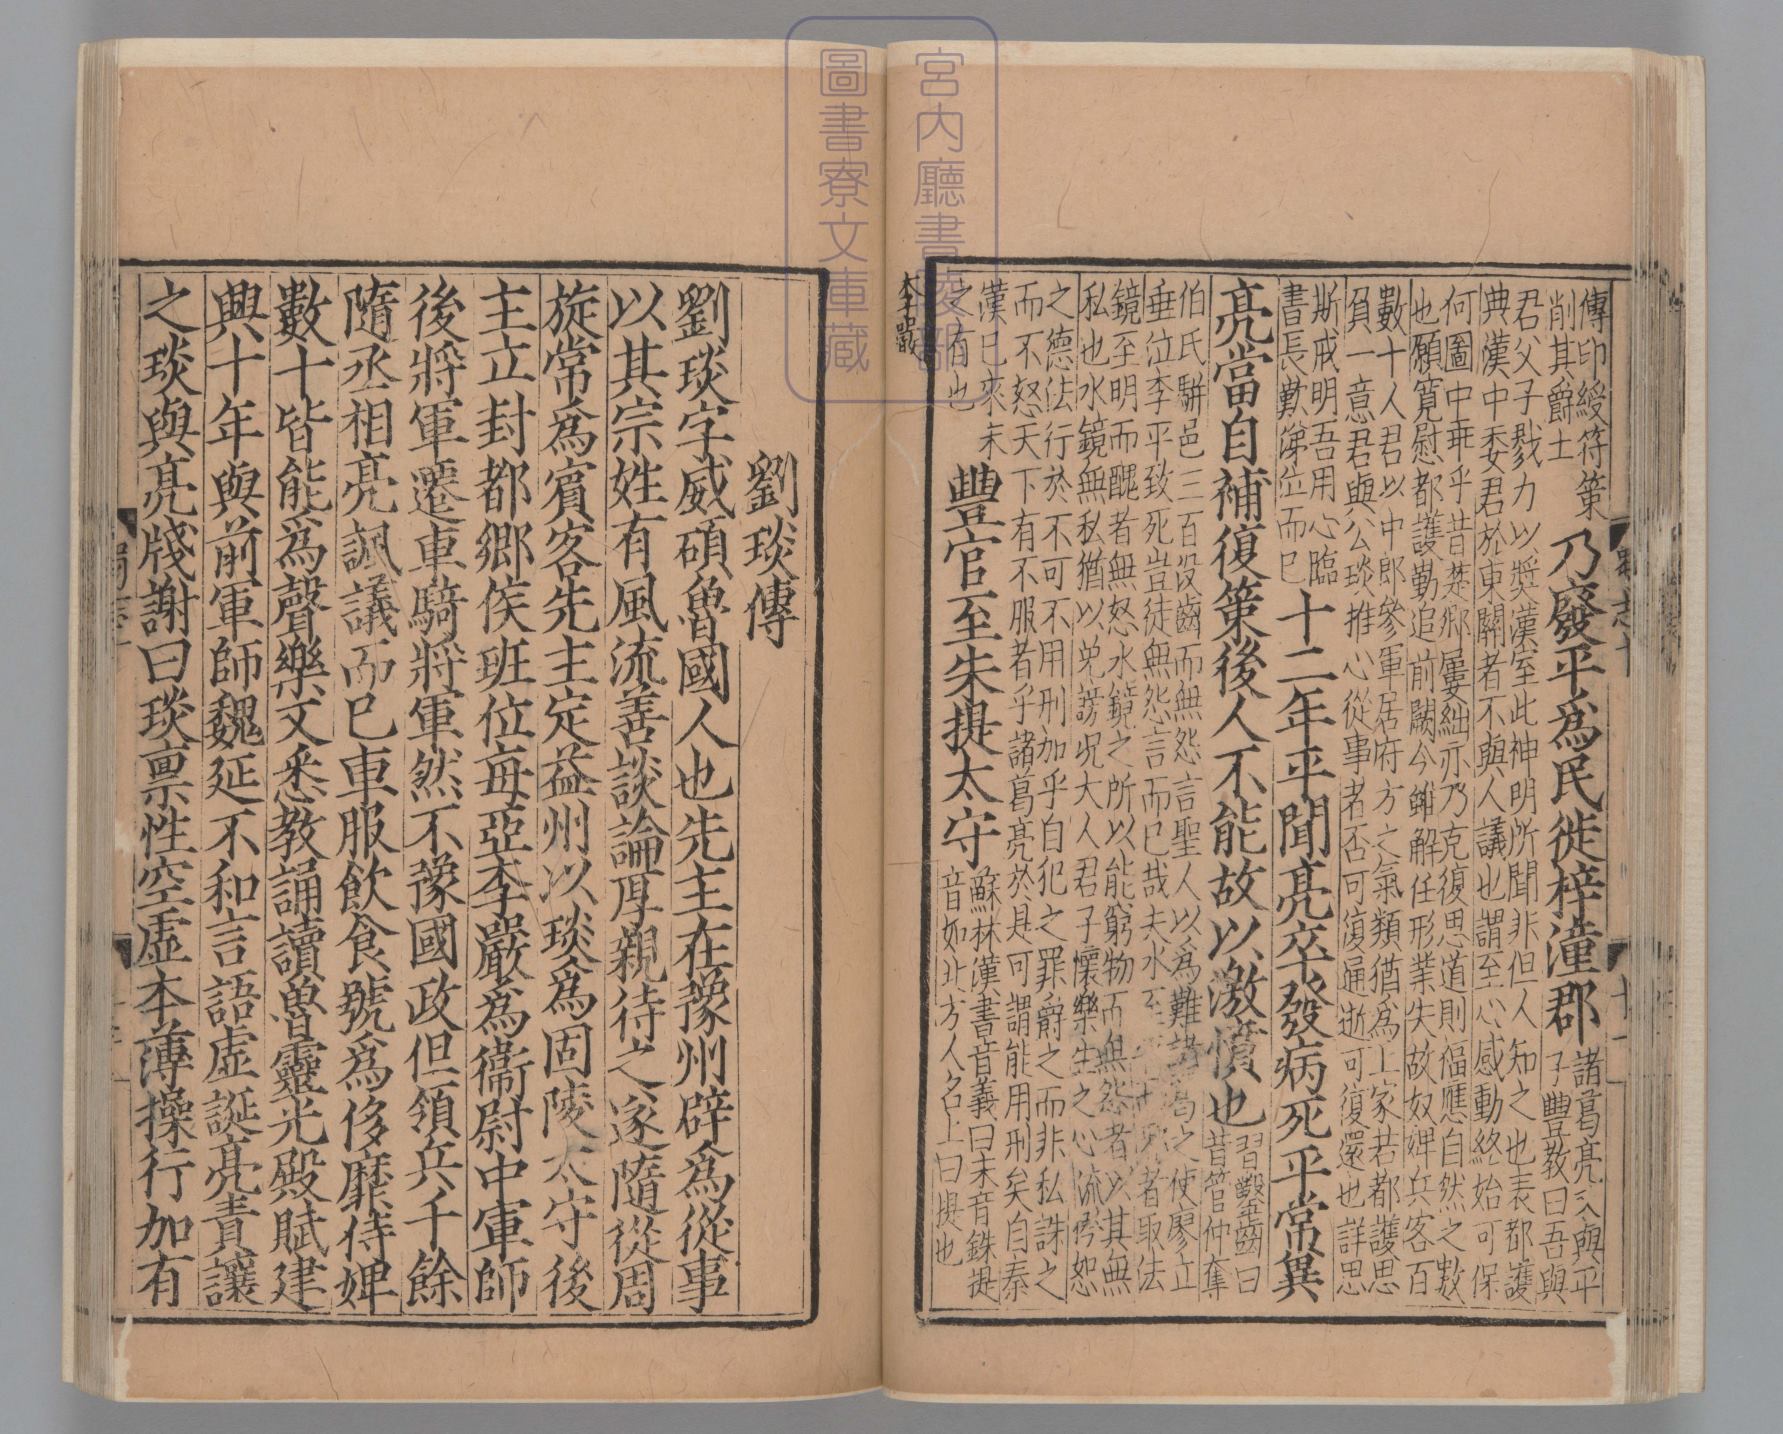 傳印綬符策
削其爵土
乃廢平爲民徙梓潼郡
諸葛亮又與平
子豐教曰吾與
君父子戮力以奬漢室此神明所聞非但人知之也表都護
典漢中委君於東關者不與人議也謂至心感動終始可保
何圖中乖乎昔楚卿屢絀亦乃克復思道則福應自然之數
也願寬慰都護勤追前闕今雖解任形業失故奴婢兵客百
數十人君以中郎參軍居府方之氣類猶爲上家若都護思
負一意君與公琰推心從事者否可復通逝可復還也詳思
斯戒明吾用心臨
書長歎涕泣而已
十二年平聞亮卒發病死平常異
亮當自補復策後人不能故以激憤也
習鑿齒曰
昔管仲奪
伯氏駢邑三百没齒而無怨言聖人以爲難諸葛之使廖立
垂泣李平致死豈徒無怨言而已哉夫水至者取法
鏡至明而醜者無怒水鏡之所以能窮物而無怨者以其無
私也水鏡無私猶以免謗況大人君子懷樂生之心流矜恕
之德法行於不可不用刑加乎自犯之罪爵之而非私誅之
而不怒天下有不服者乎諸葛亮於是可謂能用刑矣自秦
漢已來未
之有也
豐官至朱提太守
蘇林漢書音義曰朱音銖提
音如北方人名上曰提也
李嚴
劉琰傳
劉琰字威碩魯國人也先主在豫州辟爲從事
以其宗姓有風流善談論厚親待之遂隨從周
旋常爲賓客先主定益州以琰爲固陵太守後
主立封都鄉侯班位每亞李嚴爲衞尉中軍師
後將軍遷車騎將軍然不豫國政但領兵千餘
隨丞相亮諷議而已車服飲食號爲侈靡侍婢
數十皆能爲聲樂又悉教誦讀魯靈光殿賦建
興十年與前軍師魏延不和言語虛誕亮責讓
之琰與亮牋謝曰琰稟性空虛本薄操行加有
宮内廳書陵部
圖書寮文庫藏